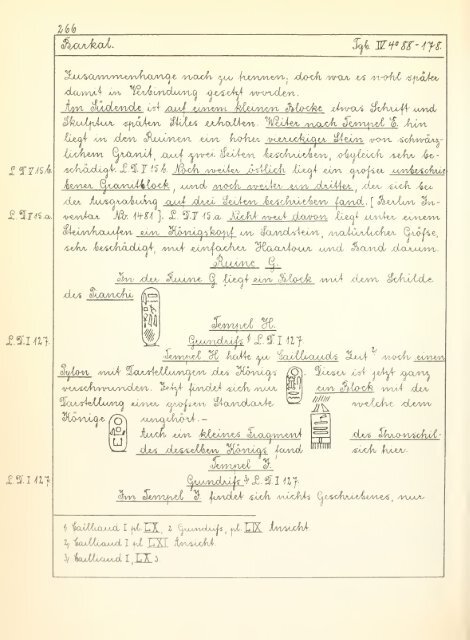 266
Barkal. Tgb. IV 4° 88-178.
Zusammenhange nach zu trennen, doch war es wohl später
damit in Verbindung gesetzt worden.
Am Südende ist auf einem kleinen Blocke etwas Schrift und
Skulptur späten Stiles erhalten. Weiter nach Tempel E. hin
liegt in den Ruinen ein hoher viereckiger Stein von schwärz-
lichem Granit, auf zwei Seiten beschrieben, obgleich sehr be-
L. D. V 15.b. schädigt. L. D. V 15.b. Noch weiter östlich liegt ein großer unbeschrie-
bener Granitblock, und noch weiter ein dritter, der sich bei
der Ausgrabung auf drei Seiten beschrieben fand. [Berlin In-
L. D. V 15.a. ventar Nr. 1481]. L. D. V 15.a. Nicht weit davon liegt unter einem
Steinhaufen ein Königskopf in Sandstein, natürlicher Größe,
sehr beschädigt, mit einfacher Haartour und Band darum.
Ruine G.
In der Ruine G liegt ein Block mit dem Schilde
des Pianchi
Tempel H.
L. D. I 127. Grundriß L. D. I 127.
Tempel H hatte zu Cailliauds Zeit 2) noch einen
Pylon mit Darstellungen des Königs Dieser ist jetzt ganz
verschwunden. Jetzt findet sich nur ein Block mit der
Darstellung einer großen Standarte welche dem
Könige angehört.-
Auch ein kleines Fragment des Thronschil-
des desselben Königs fand sich hier.
Tempel J.
L. D. I 127. Grundriß 3) L. D. I 127.
Im Tempel J findet sich nichts Geschriebenes, nur
1, Cailliaud I pl. LX, 2 Grundriß, pl. LIX Ansicht
2, Cailliaud I pl. LXI Ansicht.
3, Cailliaud I, LX 3.